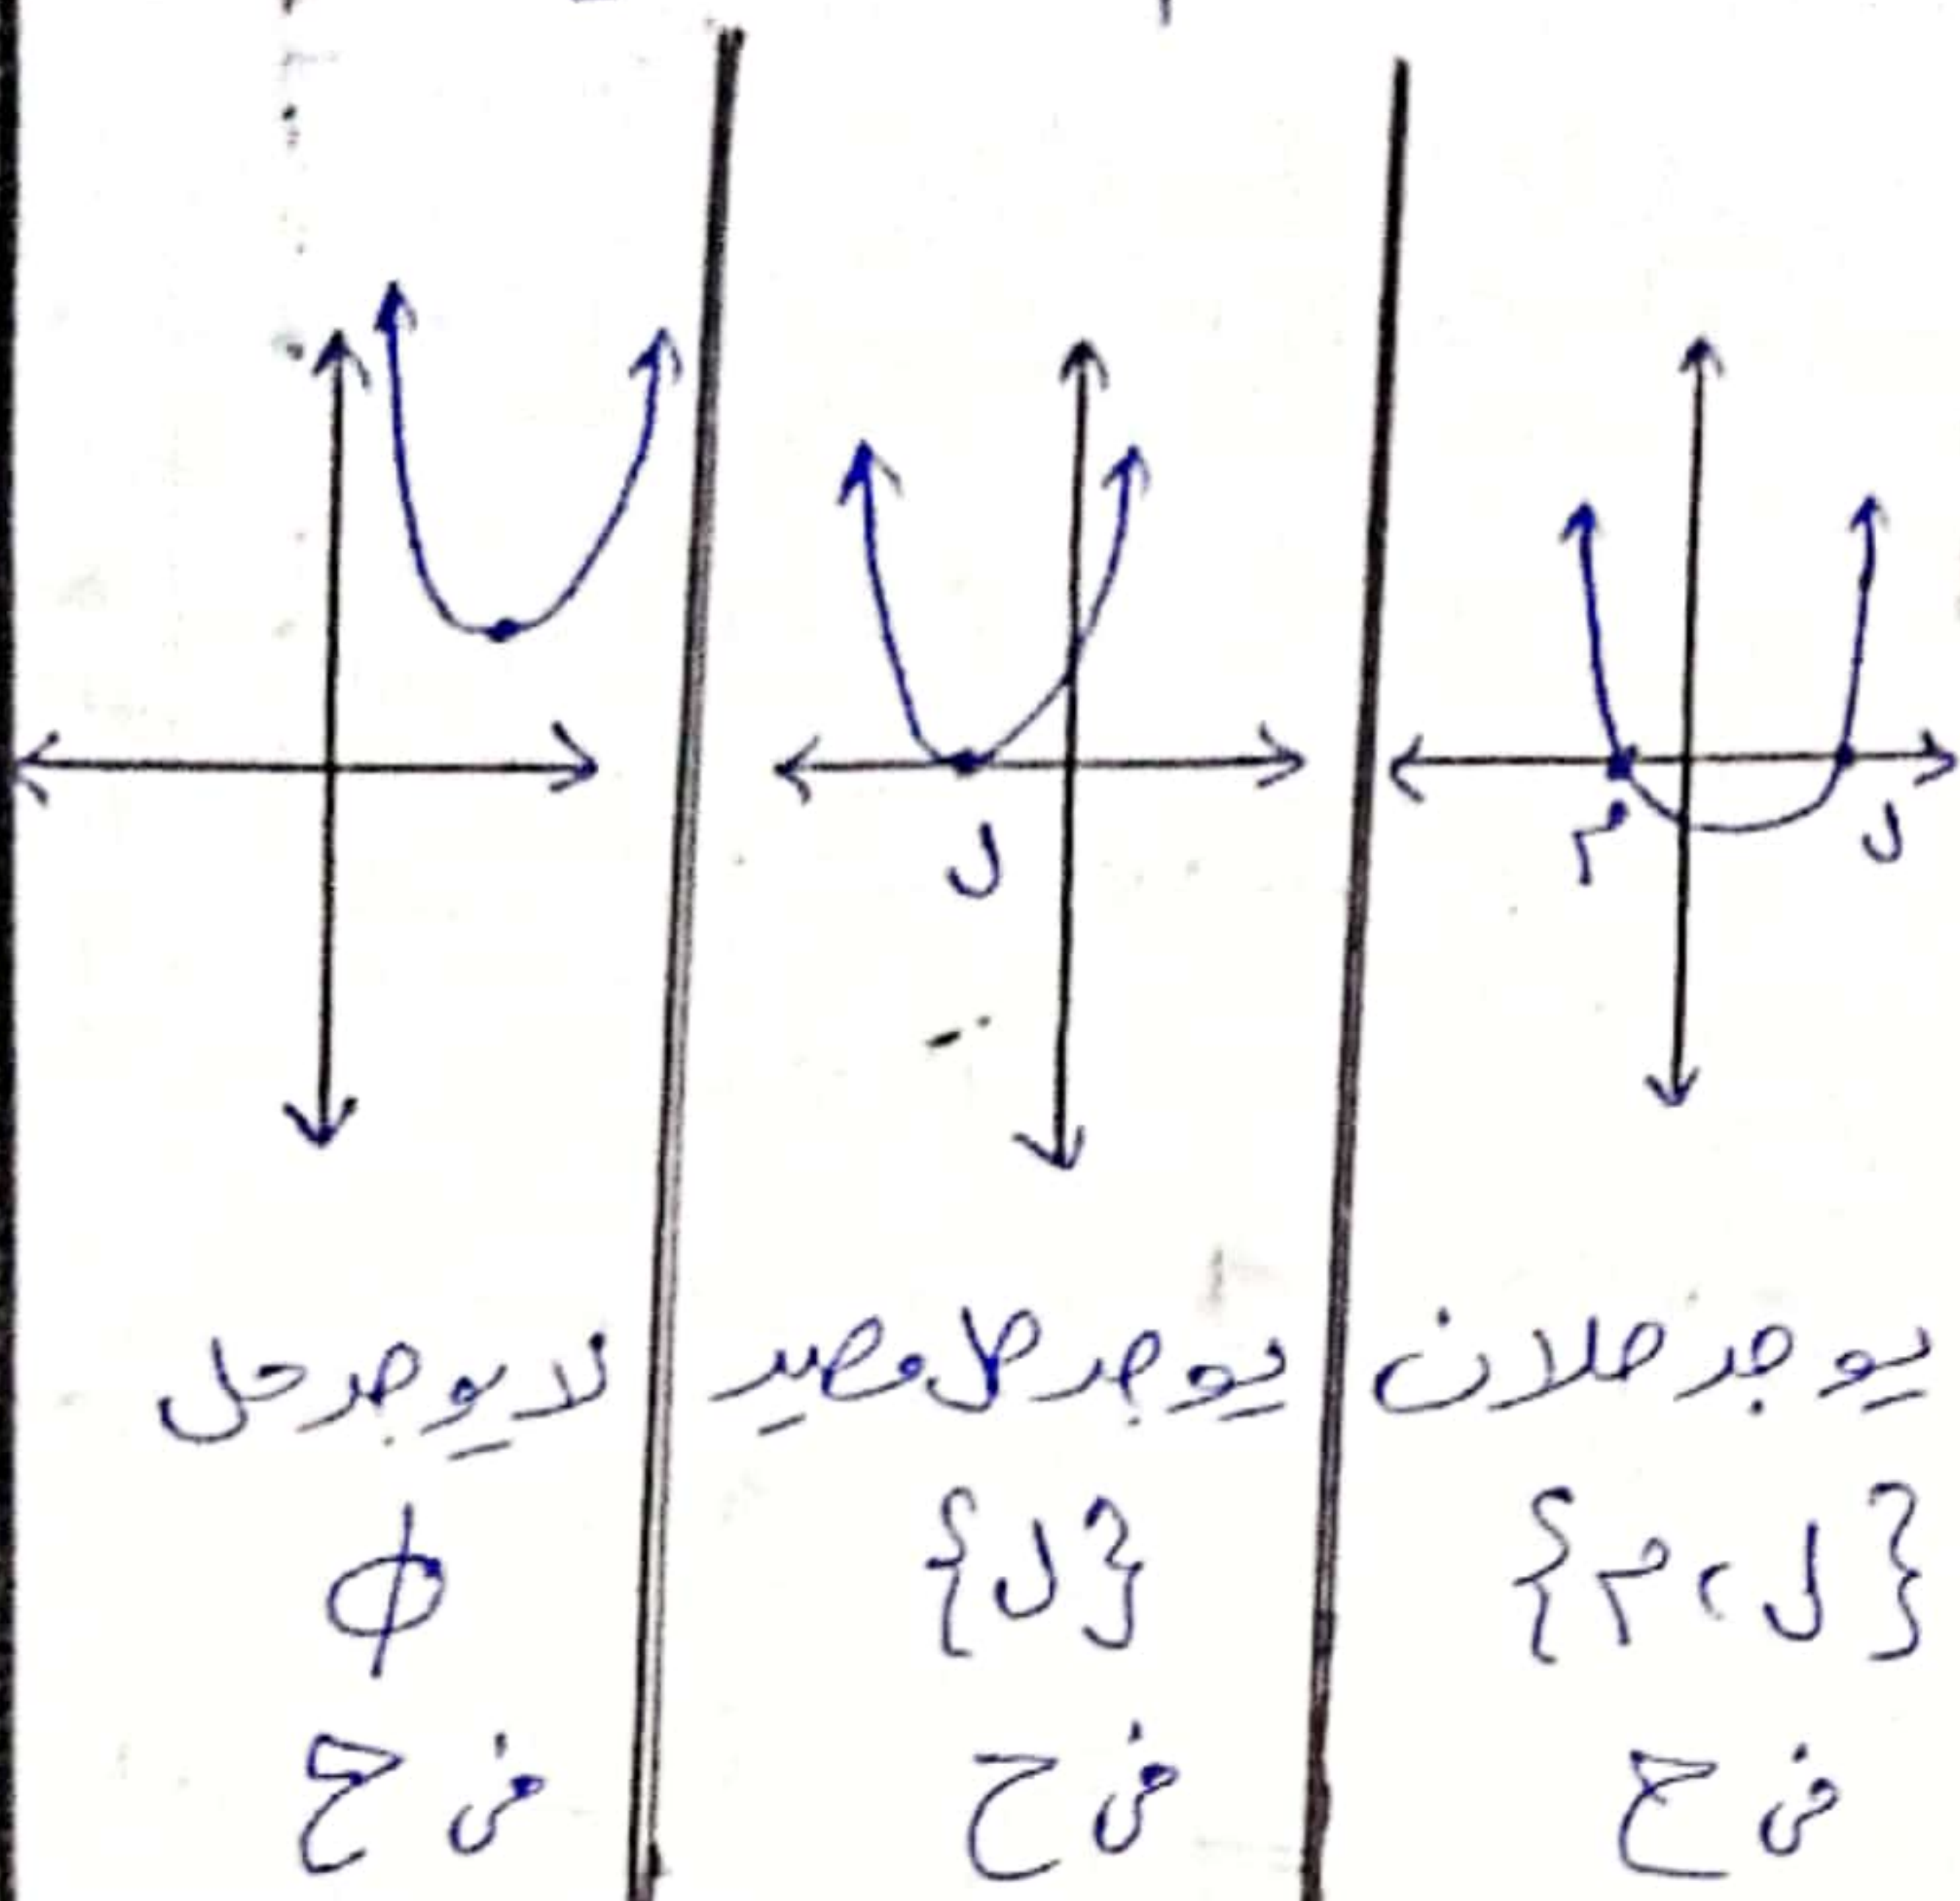 م
ل
يوجد حلان
{ل ، م}
فى ح
ل
يوجد حل وحيد
{ل}
فى ح
لا يوجد حل
ϕ
فى ح